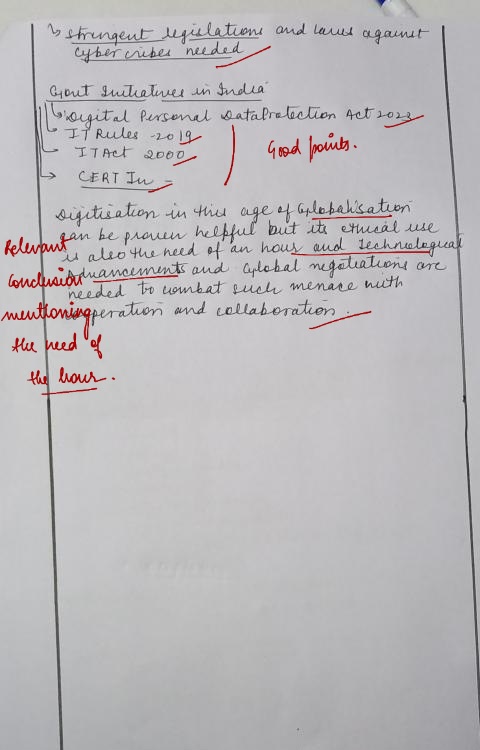 ↳ Stringent legislations and laws against
cybercribes needed
Govt Initiatives in India
↳ Digital Personal DataProtection Act 2023
IT Rules - 2019
IT Act 2000
→ CERT In -
Good points.
Digitisation in this age of Globalisation
can be proven helpful but its ethical use
is also the need of an hour and Technological
Advancements and Global negotiations are
needed to combat such menace with
cooperation and collaboration.
Relevant
Conclusion
mentioning
the need of
the hour.